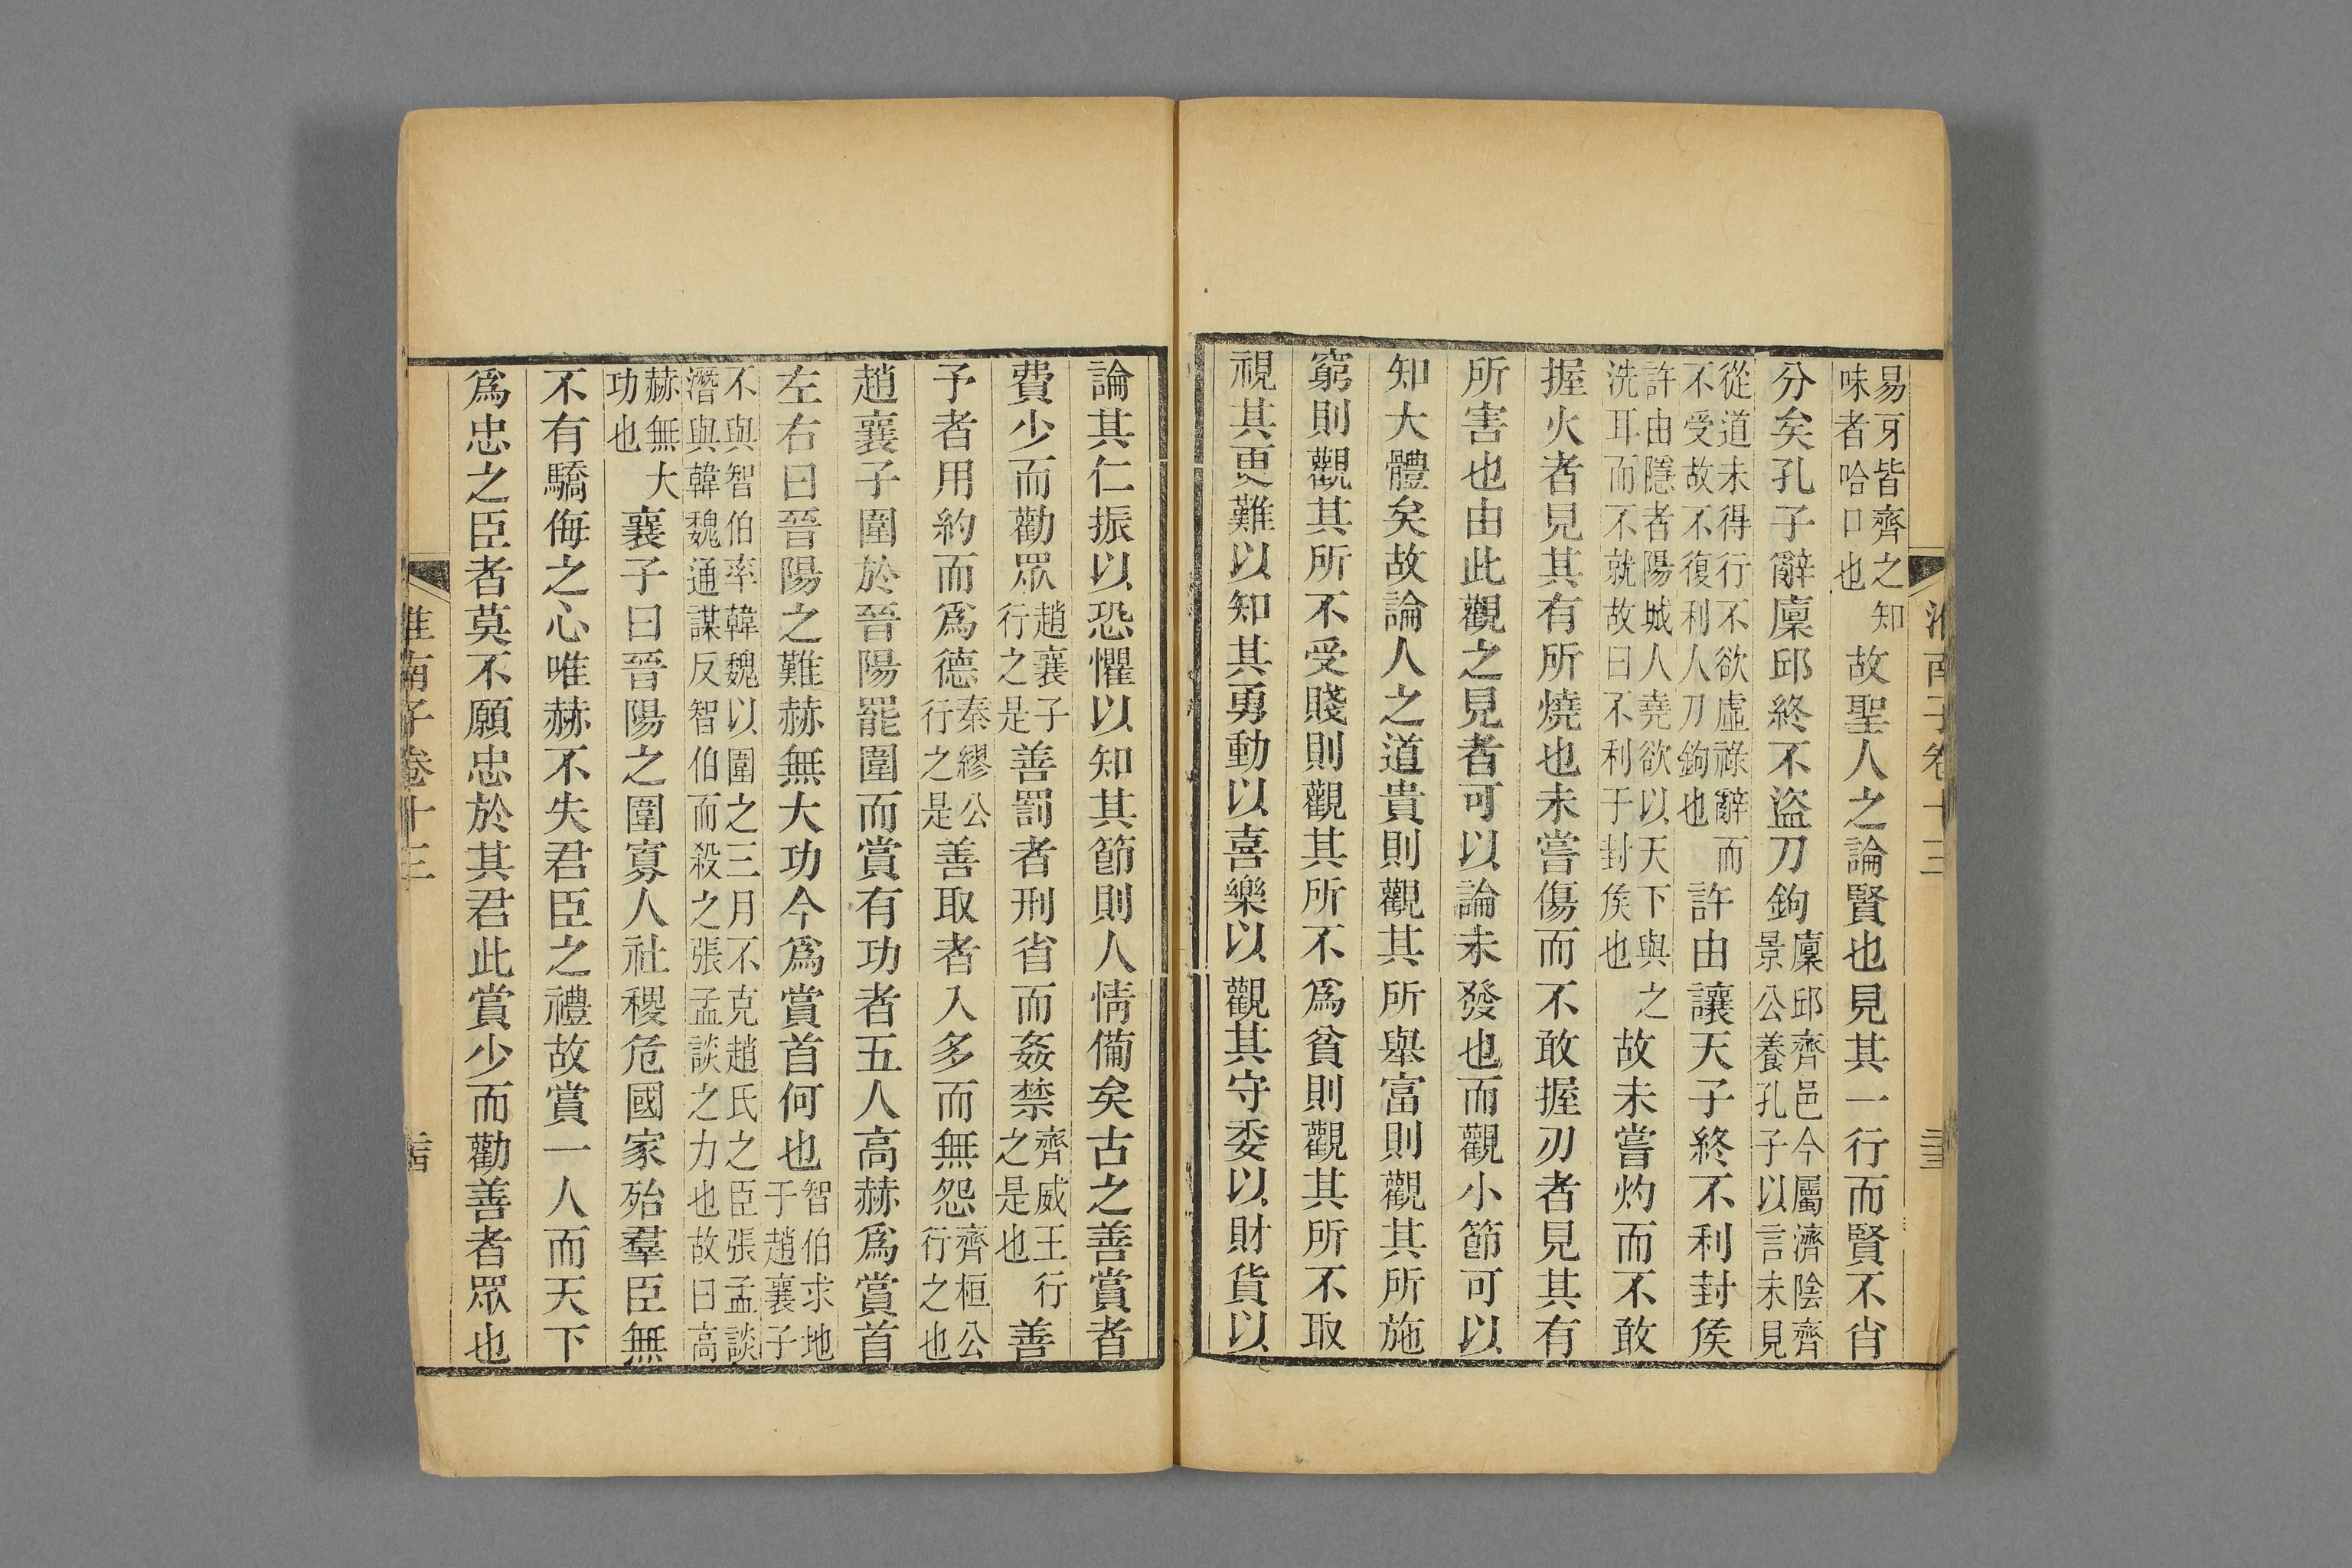 淮南子卷十三
易牙皆齊之知
味者哈口也
故聖人之論賢也見其一行而賢不肖
分矣孔子辭廩邱終不盜刀鉤
廩邱齊邑今屬濟陰齊
景公養孔子以言未見
從道未得行不欲虛祿辭而
不受故不復利人刀鉤也
許由讓天子終不利封侯
許由隱者陽城人堯欲以天下與之
洗耳而不就故曰不利于封侯也
故未嘗灼而不敢
握火者見其有所燒也未嘗傷而不敢握刃者見其有
所害也由此觀之見者可以論未發也而觀小節可以
知大體矣故論人之道貴則觀其所舉富則觀其所施
窮則觀其所不受賤則觀其所不爲貧則觀其所不取
視其更難以知其勇動以喜樂以觀其守委以財貨以
論其仁振以恐懼以知其節則人情備矣古之善賞者
費少而勸眾
趙襄子
行之是
善罰者刑省而姦禁
齊威王行
之是也
善
予者用約而爲德
秦繆公
行之是
善取者入多而無怨
齊桓公
行之也
趙襄子圍於晉陽罷圍而賞有功者五人高赫爲賞首
左右曰晉陽之難赫無大功今爲賞首何也
智伯求地
于趙襄子
不與智伯率韓魏以圍之三月不克趙氏之臣張孟談
潛與韓魏通謀反智伯而殺之張孟談之力也故曰高
赫無大
功也
襄子曰晉陽之圍寡人社稷危國家殆羣臣無
不有驕侮之心唯赫不失君臣之禮故賞一人而天下
爲忠之臣者莫不願忠於其君此賞少而勸善者眾也
淮南子卷十三